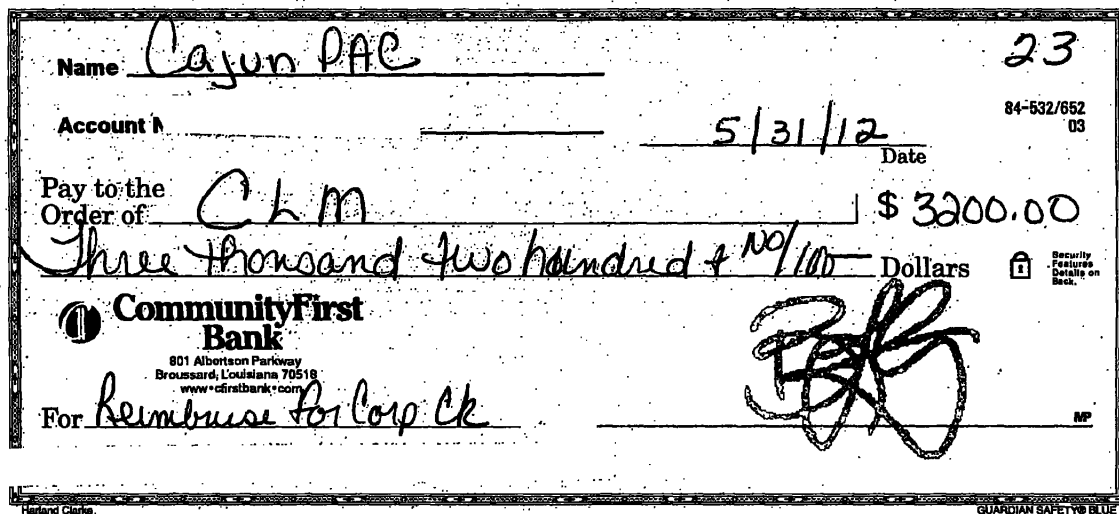 Name Cajun PAC 23
84-532/652
03
Account N
5/31/12
Date
Pay to the
Order of CLM $ 3200.00
Three thousand two hundred + NO/100 Dollars
Security
Features
Details on
Back.
CommunityFirst
Bank
801 Albertson Parkway
Broussard, Louisiana 70518
www•cfirstbank•com
For Reimbruise for Corp Ck
MP
Harland Clarke
GUARDIAN SAFETY® BLUE